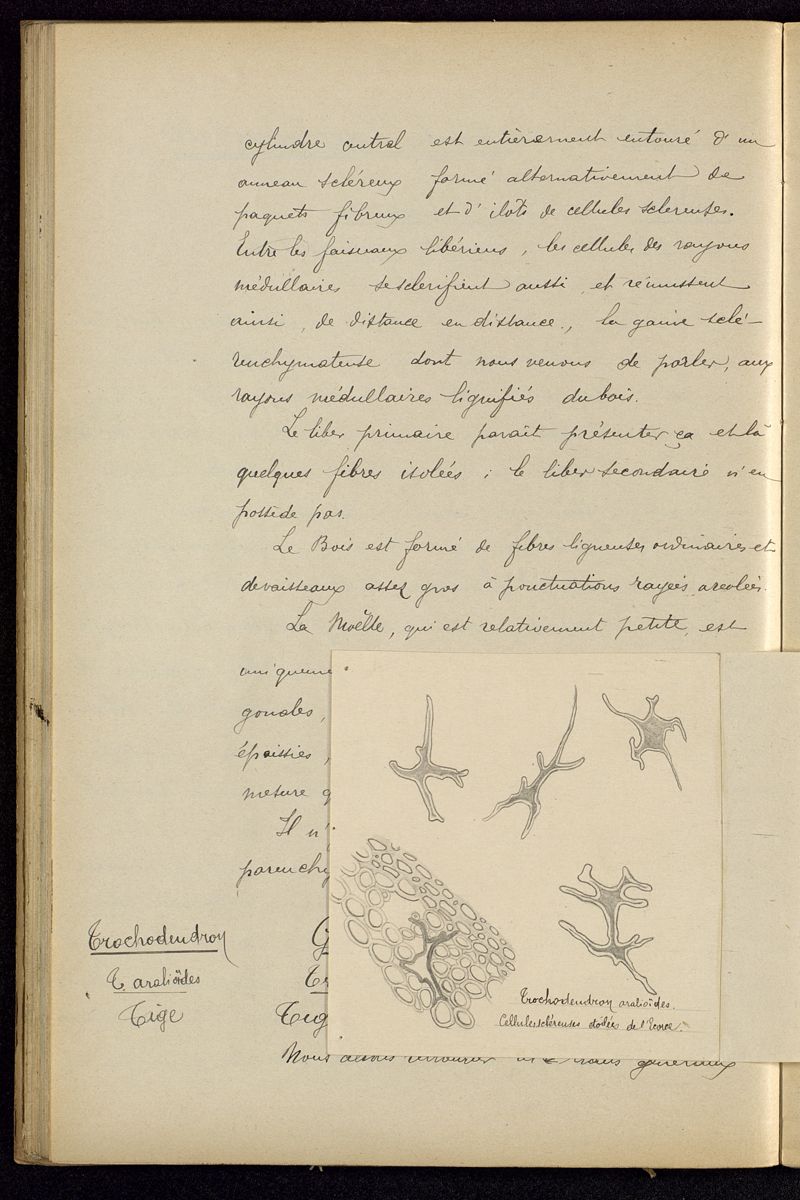 cylindre central est entièrement entouré d'un
anneau scléreux formé alternativement de
paquets fibreux et d'ilôts de cellules sclereuses.
Entre les faisceaux libériens, les cellules des rayons
médullaires se sclerifient aussi et réunissent
ainsi, de distance en distance, la gaine sclé-
renchymateuse dont nous venons de parler, aux
rayons médullaires lignifiés du bois.
Le liber primaire parait présenter ça et là
quelques fibres isolées ; le liber secondaire n'en
possède pas.
Le Bois est formé de fibres ligneuses ordinaires et
de vaisseaux assez gros à ponctuations rayées areolées.
La Moëlle, qui est relativement petite, est
uniqueme
gonales,
épaissies,
mesure q
Il n'
parenchy
Trochodendron
T. aralioïdes
Tige
G
Tr
Tig
Trochodendron aralioïdes.
Cellules scléreuses étoilées de l'Ecorce.
Nous allons retrouver traits généraux